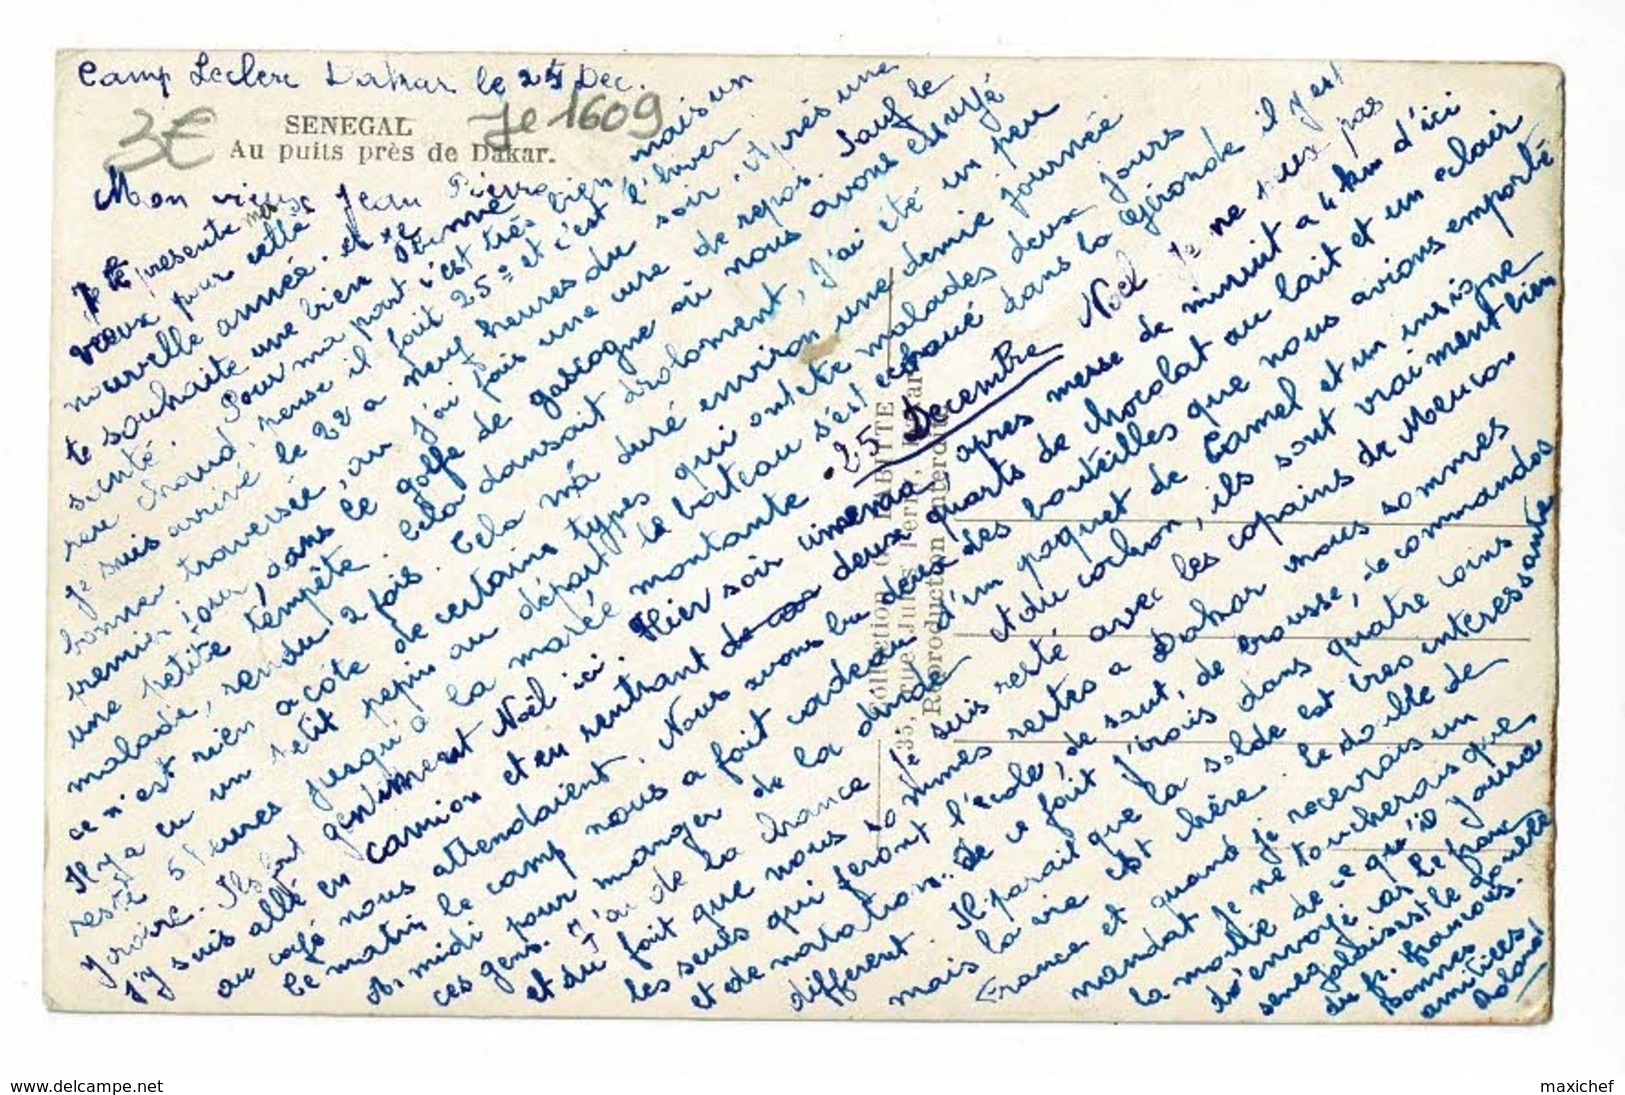 Camp Leclerc Dakar le 24 Dec.
3€
Je 1609
SENEGAL
Au puits près de Dakar.
Mon vieux Jean Pierre
Je te presente mes
vœux pour cette
nouvelle année. et je
te souhaite une bien bonne
santé. Pour ma part c'est très bien, mais un
peu chaud, pense il fait 25° et c'est l'hiver.
Je suis arrivé le 22 a neuf heures du soir. Après une
bonne traversée, ou j'ai fais une cure de repos. Sauf le
premier jour, dans le golfe de gascogne où nous avons essuyé
une petite tempête. Cela dansait drolement, j'ai été un peu
malade, rendu 2 fois. Cela m'a duré environ une demie journée
ce n'est rien a côté de certains types qui ont été malades deux jours
Il y a eu un petit pepin au départ le bateau s'est echoué dans la Gironde il y est
resté 5 heures jusqu'à la marée montante. 25 Decembre Noël Je ne peux pas
y croire. Ils font gentiment Noël ici. Hier soir cinema, apres messe de minuit a 4 km d'ici
j'y suis allé en camion et en rentrant deux quarts de chocolat au lait et un eclair
au café nous attendaient. Nous avons bu deux des bouteilles que nous avions emporté
le matin le camp nous a fait cadeau d'un paquet de Camel et un insigne
A midi pour manger de la dinde et du cochon, ils sont vraiment bien
ces gens. J'ai de la chance je suis resté avec les copains de Meucon
et du fait que nous sommes restes a Dakar nous sommes
les seuls qui feront l'école, de saut, de brousse, de commandos
et de natation. De ce fait j'irais dans quatre coins
différent. Il parait que la solde est très interessante
mais la vie est chère. Le double de
France et quand je recevrais un
mandat je ne toucherais que
la moitié de ce qu'il y aura
d'envoyé car le franc
senegalais est le double
du fr. français.
Bonnes
amitiées
Roland
Collection
35, rue Jules Ferry, Dakar
Reproduction interdite
www.delcampe.net
maxichef